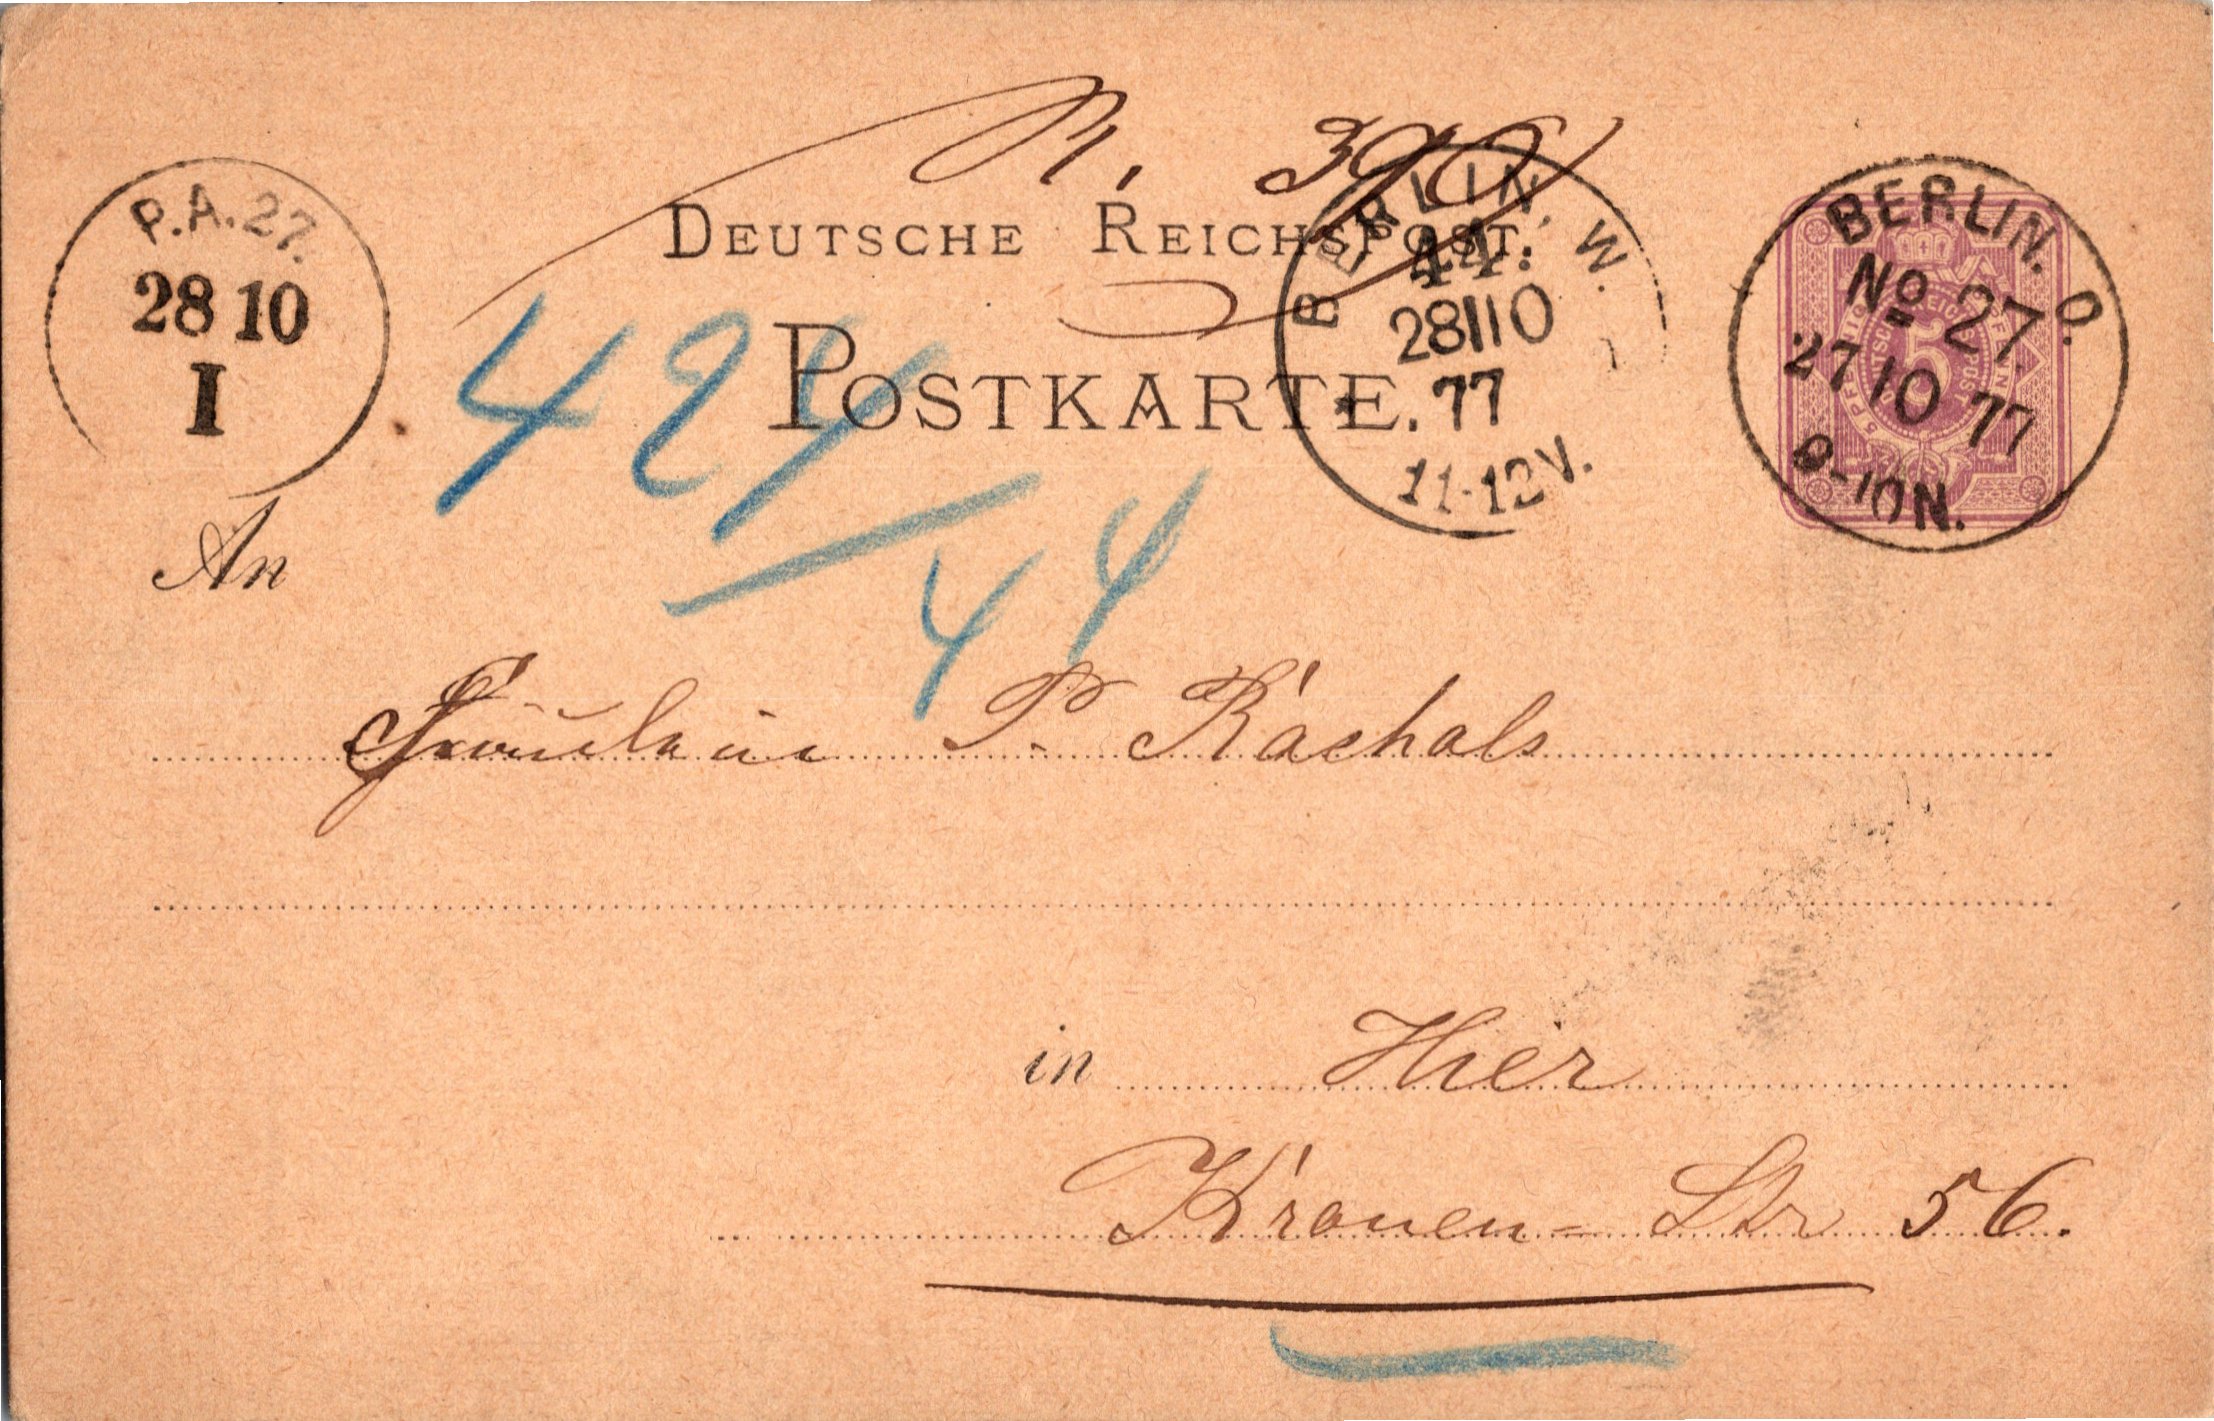 N. 390
DEUTSCHE REICHSPOST.
POSTKARTE.
P.A. 27.
28 10
I
BERLIN, W.
44.
28 10
77
11-12 V.
BERLIN. O.
No 27.
27 10 77
9-10 N.
5
424/44
An
Fräulein P. Rachals
in Hier
Kronen-Str 56.